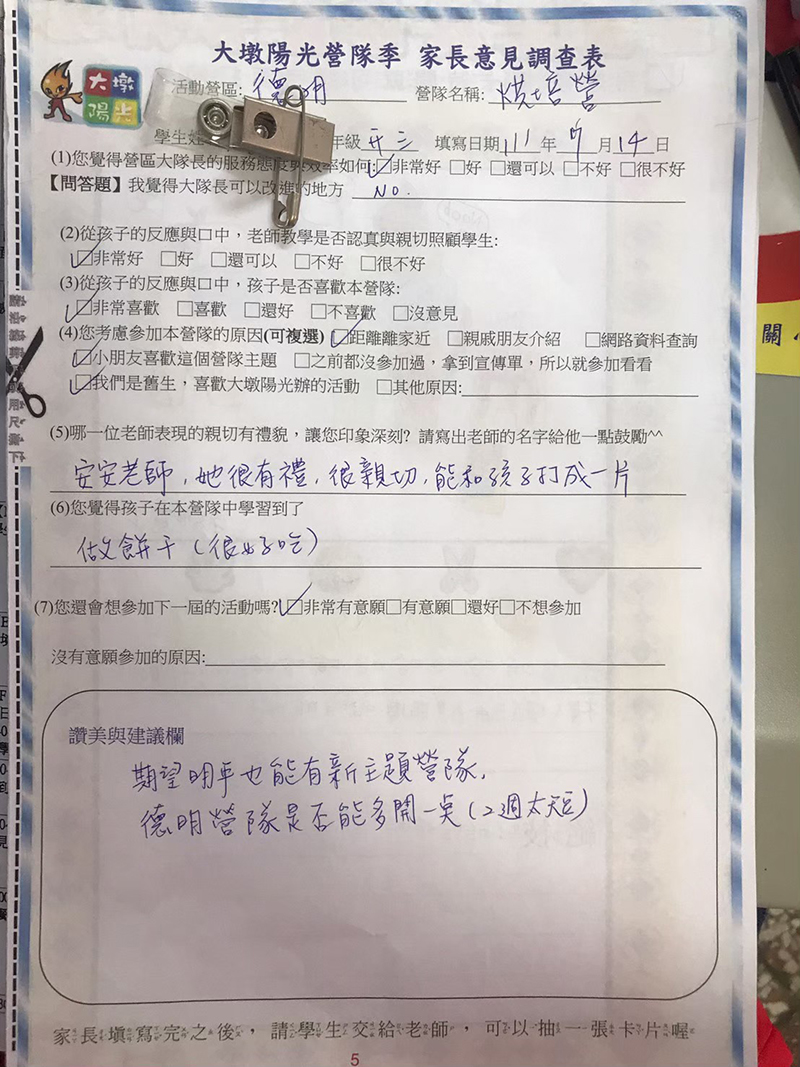 大墩陽光營隊季 家長意見調查表
大墩
陽光
活動營區: 德明 營隊名稱: 烘培營
學生姓 年級 升三 填寫日期 111 年 7 月 14 日
(1)您覺得營區大隊長的服務態度與效率如何:☑非常好 □好 □還可以 □不好 □很不好
【問答題】我覺得大隊長可以改進的地方 No.
(2)從孩子的反應與口中，老師教學是否認真與親切照顧學生:
☑非常好 □好 □還可以 □不好 □很不好
(3)從孩子的反應與口中，孩子是否喜歡本營隊:
☑非常喜歡 □喜歡 □還好 □不喜歡 □沒意見
(4)您考慮參加本營隊的原因(可複選) ☑距離離家近 □親戚朋友介紹 □網路資料查詢
☑小朋友喜歡這個營隊主題 □之前都沒參加過，拿到宣傳單，所以就參加看看
☑我們是舊生，喜歡大墩陽光辦的活動 □其他原因:
(5)哪一位老師表現的親切有禮貌，讓您印象深刻? 請寫出老師的名字給他一點鼓勵^^
安安老師，她很有禮，很親切，能和孩子打成一片
(6)您覺得孩子在本營隊中學習到了
做餅干（很好吃）
(7)您還會想參加下一屆的活動嗎?☑非常有意願□有意願□還好□不想參加
沒有意願參加的原因:
讚美與建議欄
期望明年也能有新主題營隊，
德明營隊是否能多開一桌（2週太短）
家長填寫完之後，請學生交給老師，可以抽一張卡片喔
5
關